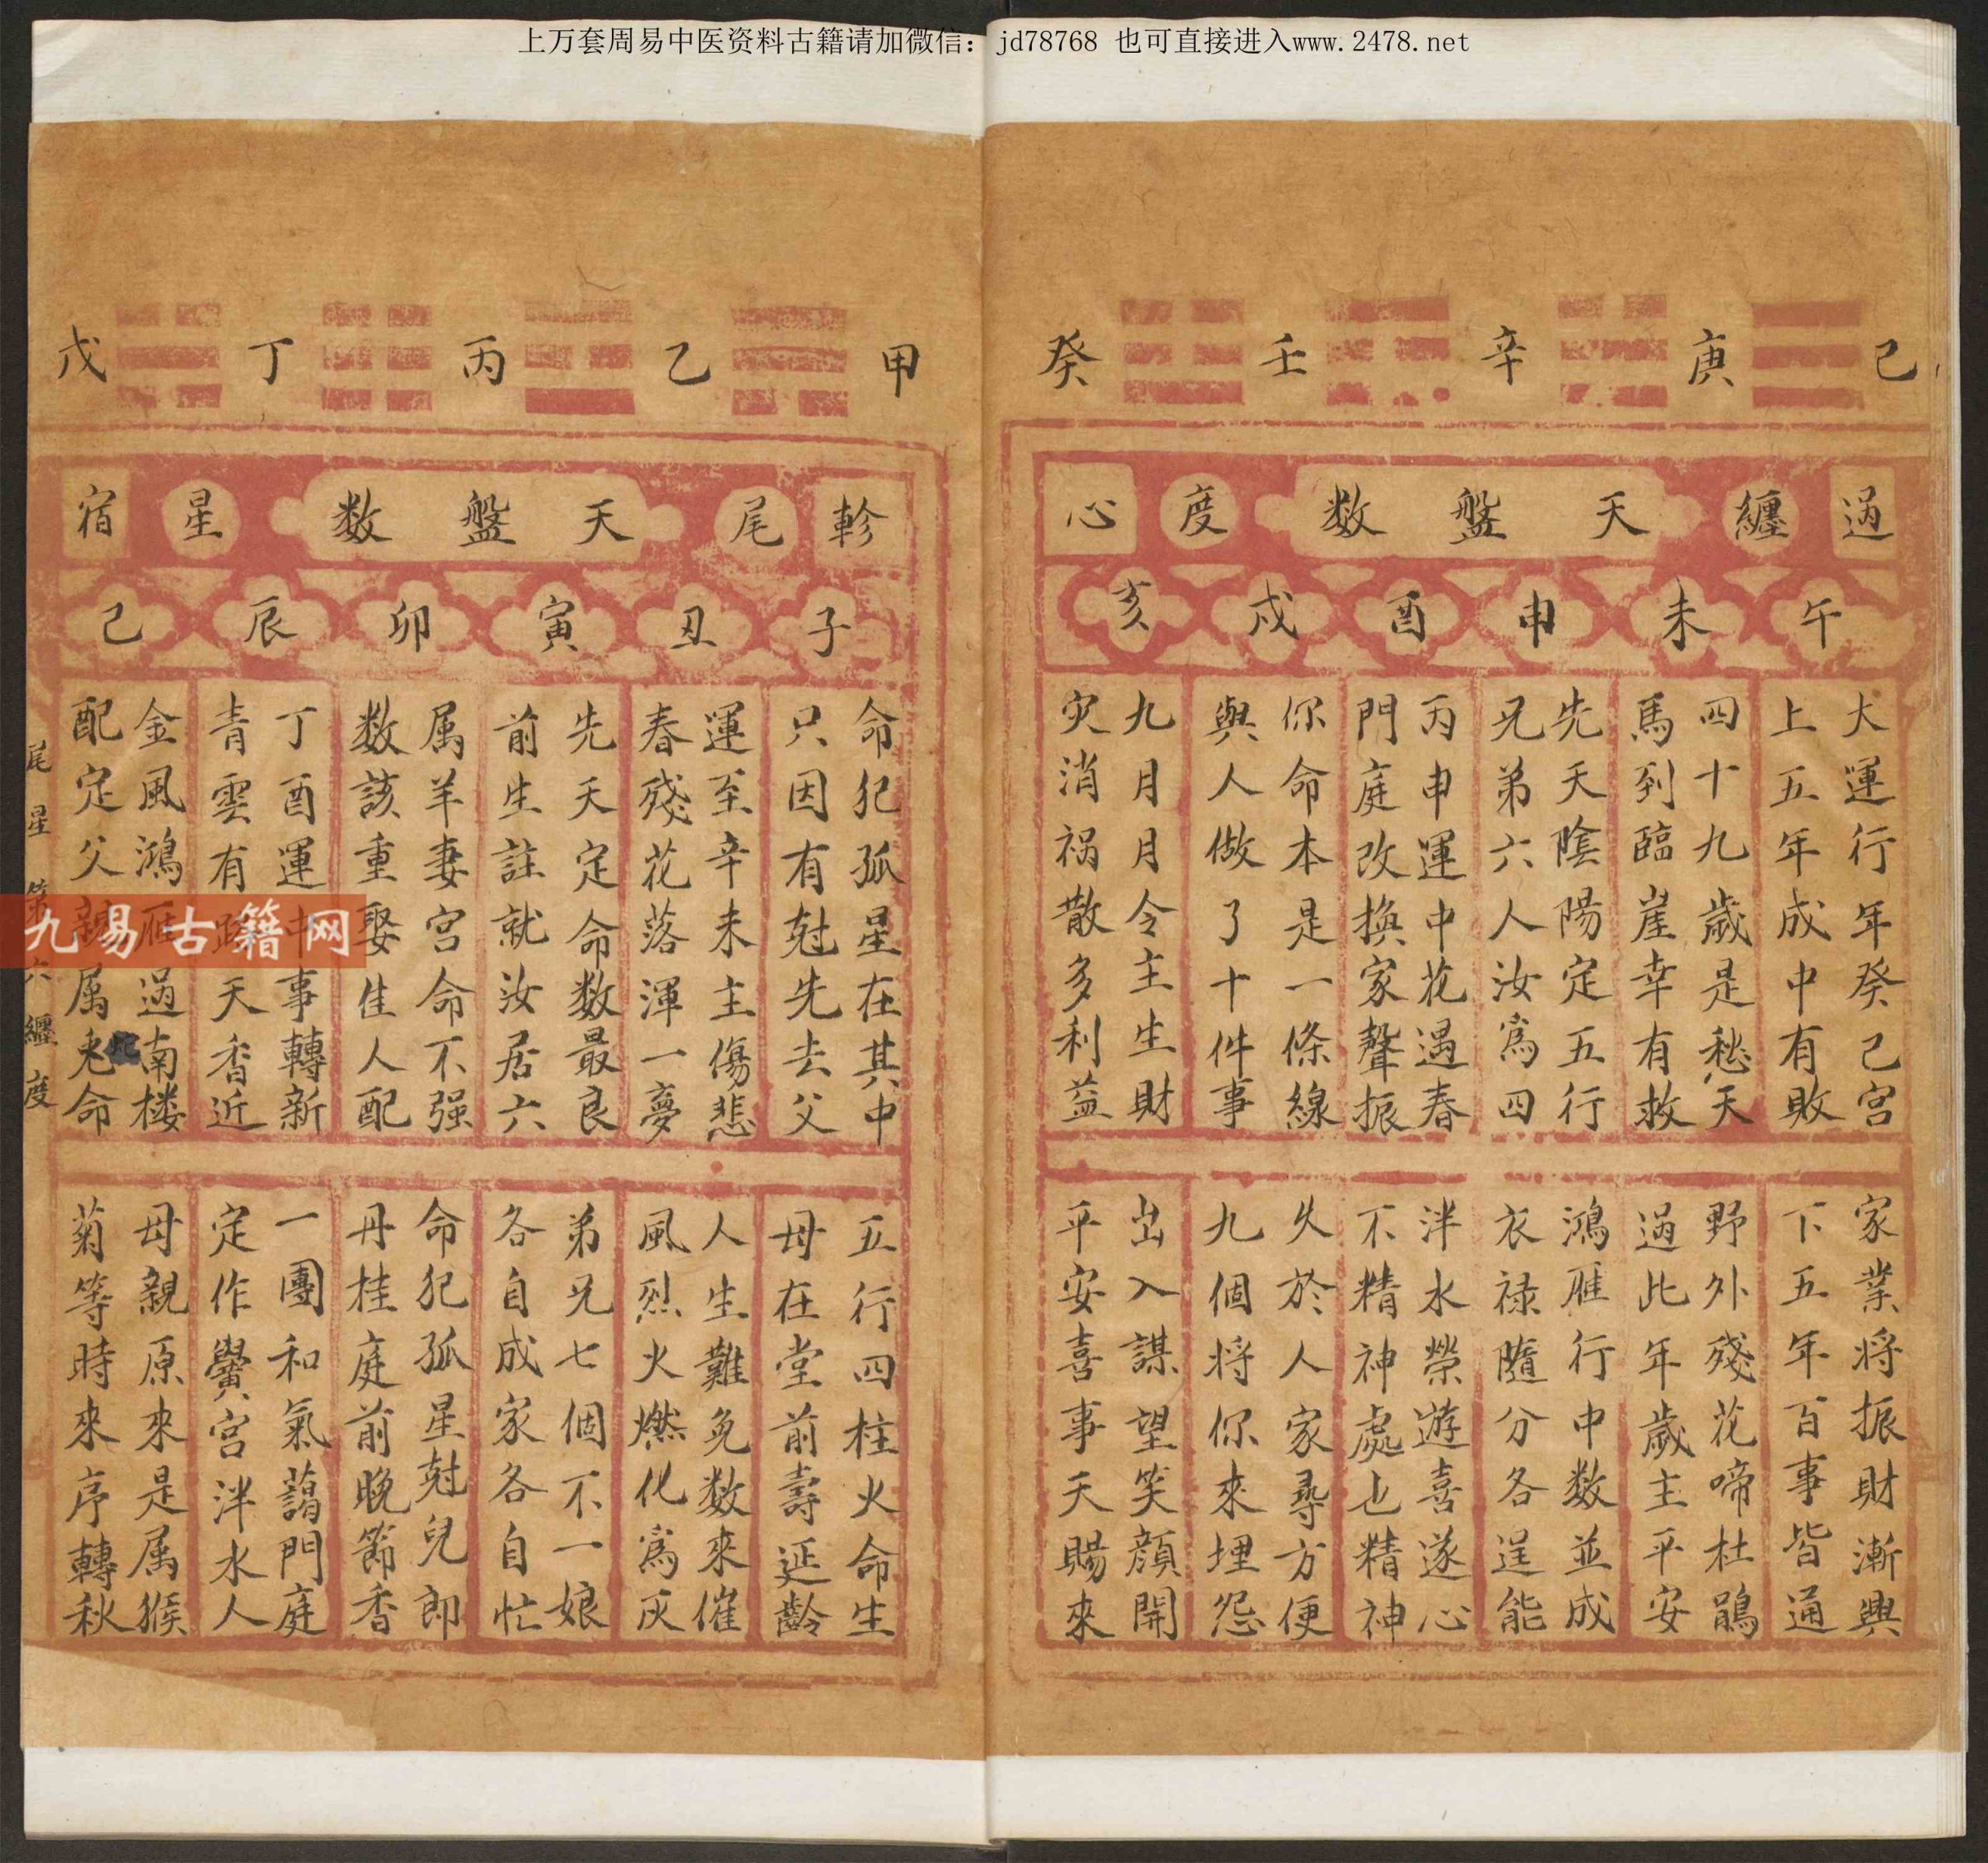 上万套周易中医资料古籍请加微信：jd78768 也可直接进入www.2478.net
己 庚 辛 壬 癸
過 纏 天盤数 度 心
午 未 申 酉 戌 亥
大運行年癸己宮
上五年成中有敗
四十九歲是愁天
馬到臨崖幸有救
先天陰陽定五行
兄弟六人汝為四
丙申運中花遇春
門庭改換家聲振
你命本是一條線
與人做了十件事
九月月令主生財
灾消禍散多利益
家業将振財漸興
下五年年百事皆通
野外殘花啼杜鵑
過此年歲主平安
鴻雁行中数並成
衣禄隨分各逞能
泮水榮遊喜遂心
不精神處也精神
久於人家尋方便
九個将你來埋怨
出入謀望笑顏開
平安喜事天賜來
甲 乙 丙 丁 戊
軫 尾 天盤数 星 宿
子 丑 寅 卯 辰 己
命犯孤星在其中
只因有尅先去父
運至辛未主傷悲
春殘花落渾一夢
先天定命数最良
前生註就汝居六
属羊妻宮命不强
数該重娶佳人配
丁酉運中事轉新
青雲有路天香近
金風鴻雁過南楼
配定父親属蛇命
五行四柱火命生
母在堂前壽延齡
人生難免数來催
風烈火燃化為灰
弟兄七個不一娘
各自成家各自忙
命犯孤星尅兒郎
丹桂庭前晚節香
一團和氣藹門庭
定作黌宮泮水人
母親原來是属猴
菊等時來序轉秋
尾星 第六 纏度
九易古籍网